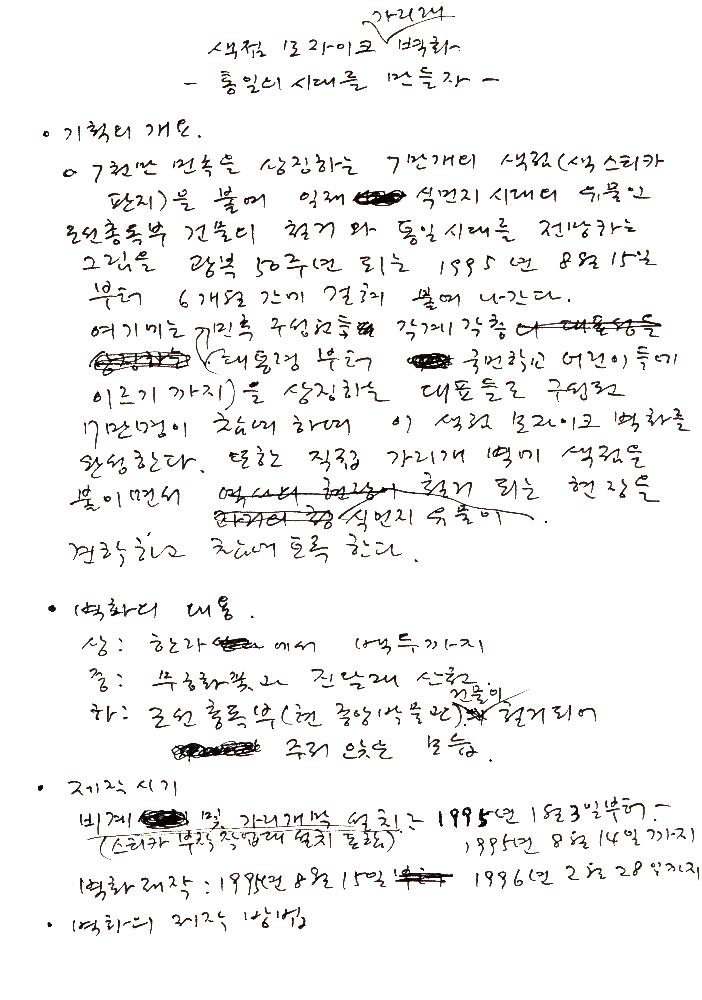 가리개
색점 모자이크 벽화
- 통일의 시대를 만들자 -
• 기획의 개요.
o 7천만 민족을 상징하는 7만개의 색점(색스티카
판지)을 붙여 일제 식민지시대의 유물인
조선총독부 건물의 철거와 통일시대를 전망하는
그림을 광복 50주년 되는 1995년 8월 15일
부터 6개월간에 걸쳐 붙여 나간다.
여기에는 민족 구성원 각계각층
(대통령부터 국민학교 어린이들에
이르기까지)을 상징하는 대표들로 구성된
7만명이 참여하며 이 색점 모자이크 벽화를
완성한다. 또한 직접 가리개 벽에 색점을
붙이면서 철거 되는 현장을
식민지 유물이
견학하고 참여토록 한다.
• 벽화의 내용.
상: 한라에서 백두까지
중: 무궁화꽃과 진달래
건물이
하: 조선총독부(현 중앙박물관) 철거되어
모습.
• 제작시기
비계 및 가리개벽 설치: 1995년 1월 3일부터-
(스티카 부착 작업대 설치 포함) 1995년 8월 14일까지
벽화제작: 1995년 8월 15일 1996년 2월 28일까지
• 벽화의 제작 방법